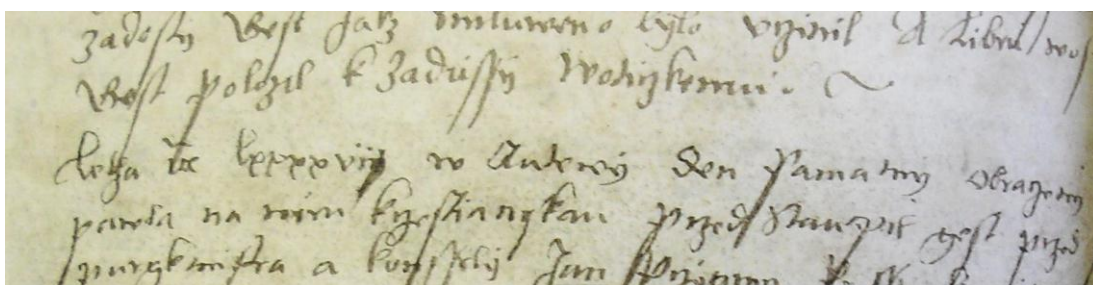 zadosti Gest jakz mluweno bylo vczinil A Libru wos
Gest polozil k Zadussy
Letha lxxxxvii w Auterey den Pamatny obraczeny
pawla na wieru krzestianskau przed Staupil gest przed
purgkmistra a konssely Jan